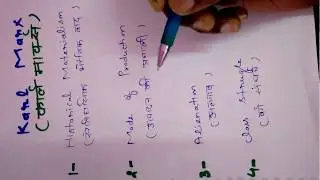 Karl Marx
(कार्ल मार्क्स)
1- Historical Materialism
(ऐतिहासिक भौतिक वाद)
2- Mode of Production
(उत्पादन की प्रणाली)
3- Alienation
(अलगाव)
4- Class Struggle
(वर्ग संघर्ष)